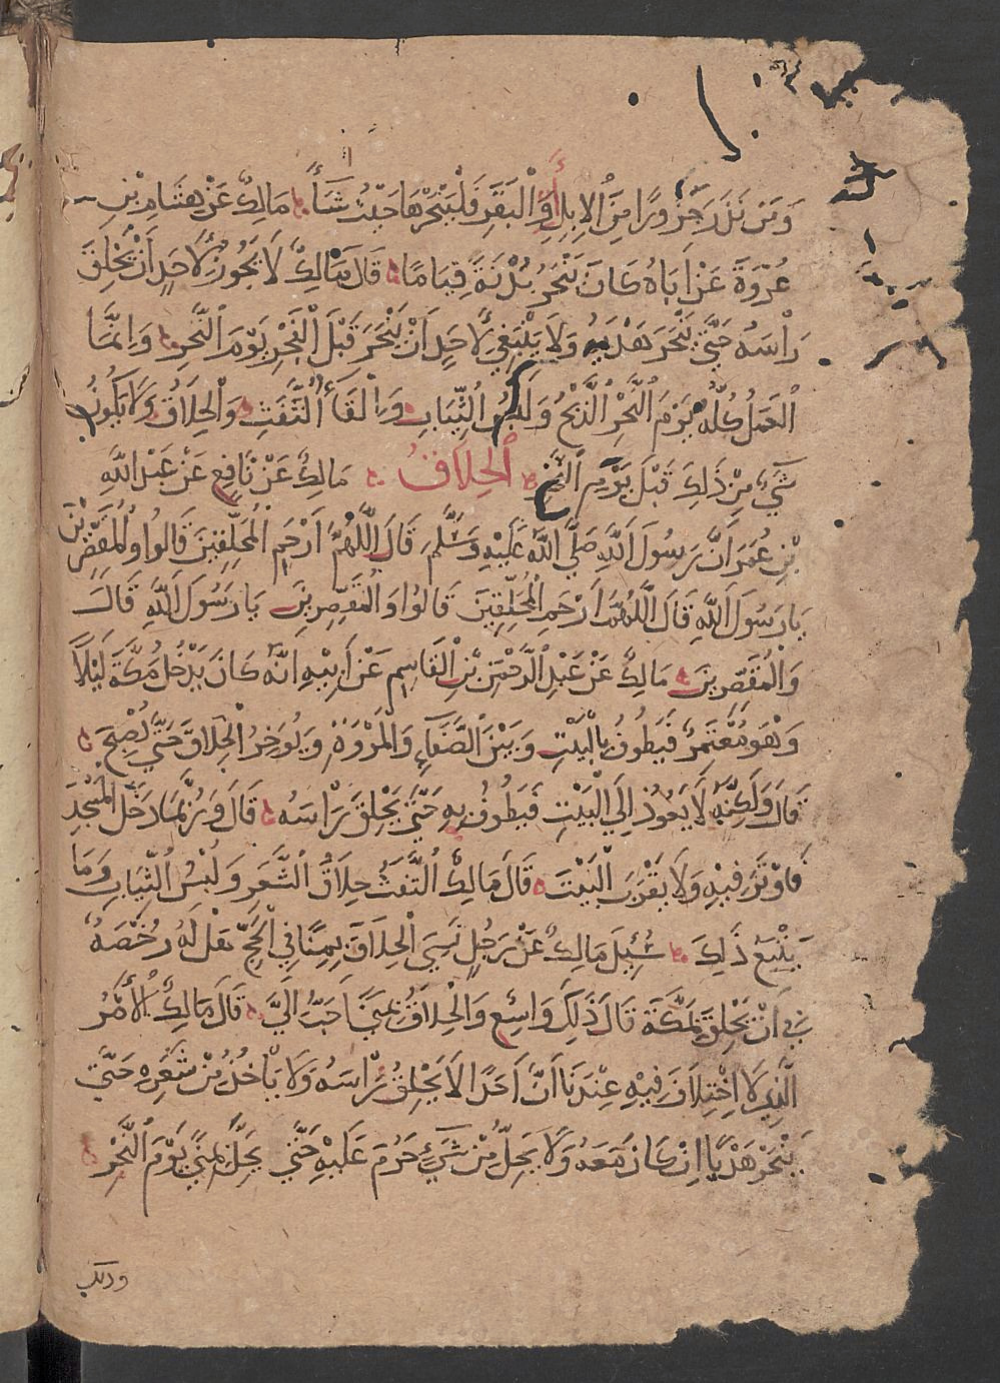 وَمَن نَذَرَ جَزُورًا مِنَ الْإِبِلِ أَوِ الْبَقَرِ فَلْيَنْحَرْهَا حَيْثُ شَاءَ مَالِكٌ عَنْ هِشَامِ بْنِ
عُرْوَةَ عَنْ أَبَاهُ كَانَ يَنْحَرُ بُدْنَهُ قِيَامًا قَالَ مَالِكٌ لَا يَجُوزُ لِأَحَدٍ أَنْ يَحْلِقَ
رَأْسَهُ حَتَّى يَنْحَرَ هَدْيَهُ وَلَا يَنْبَغِي لِأَحَدٍ أَنْ يَنْحَرَ قَبْلَ الْفَجْرِ يَوْمَ النَّحْرِ وَإِنَّمَا
الْعَمَلُ كُلُّهُ يَوْمَ النَّحْرِ الذَّبْحُ وَلُبْسُ الثِّيَابِ وَإِلْقَاءُ التَّفَثِ وَالْحِلَاقُ وَلَا يَكُونُ
شَيْءٌ مِنْ ذَلِكَ قَبْلَ يَوْمِ النَّحْرِ الْحِلَاقُ مَالِكٌ عَنْ نَافِعٍ عَنْ عَبْدِ اللَّهِ
بْنِ عُمَرَ أَنَّ رَسُولَ اللَّهِ صَلَّى اللَّهُ عَلَيْهِ وَسَلَّمَ قَالَ اللَّهُمَّ ارْحَمِ الْمُحَلِّقِينَ قَالُوا وَالْمُقَصِّرِينَ
يَا رَسُولَ اللَّهِ قَالَ اللَّهُمَّ ارْحَمِ الْمُحَلِّقِينَ قَالُوا وَالْمُقَصِّرِينَ يَا رَسُولَ اللَّهِ قَالَ
وَالْمُقَصِّرِينَ مَالِكٌ عَنْ عَبْدِ الرَّحْمَنِ بْنِ الْقَاسِمِ عَنْ أَبِيهِ أَنَّهُ كَانَ يَدْخُلُ مَكَّةَ لَيْلًا
وَهُوَ مُعْتَمِرٌ فَيَطُوفُ بِالْبَيْتِ وَبَيْنَ الصَّفَاءِ وَالْمَرْوَةِ وَيُوَخِّرُ الْحِلَاقَ حَتَّى يُصْبِحَ
قَالَ وَلَكِنَّهُ لَا يَعُودُ إِلَى الْبَيْتِ فَيَطُوفُ بِهِ حَتَّى يَحْلِقَ رَأْسَهُ قَالَ وَرُبَّمَا دَخَلَ الْمَسْجِدَ
فَأَوْتَرَ فِيهِ وَلَا يَقْرَبَ الْبَيْتَ قَالَ مَالِكٌ التَّفَثُ حِلَاقُ الشَّعَرِ وَلُبْسُ الثِّيَابِ وَمَا
يَتْبَعُ ذَلِكَ سُئِلَ مَالِكٌ عَنْ رَجُلٍ نَسِيَ الْحِلَاقَ بِمِنًا فِي الْحَجِّ هَلْ لَهُ رُخْصَةٌ
فِي أَنْ يَحْلِقَ بِمَكَّةَ قَالَ ذَلِكَ وَاسِعٌ وَالْحِلَاقُ بِمِنًى أَحَبُّ إِلَيَّ قَالَ مَالِكٌ الْأَمْرُ
الَّذِي لَا اخْتِلَافَ فِيهِ عِنْدَنَا أَنَّ أَحَدًا لَا يَحْلِقُ رَأْسَهُ وَلَا يَأْخُذُ مِنْ شَعَرِهِ حَتَّى
يَنْحَرَ هَدْيًا إِنْ كَانَ مَعَهُ وَلَا يَحِلُّ مِنْ شَيْءٍ حَرُمَ عَلَيْهِ حَتَّى يَحِلَّ بِمِنًى يَوْمَ النَّحْرِ
وذلك